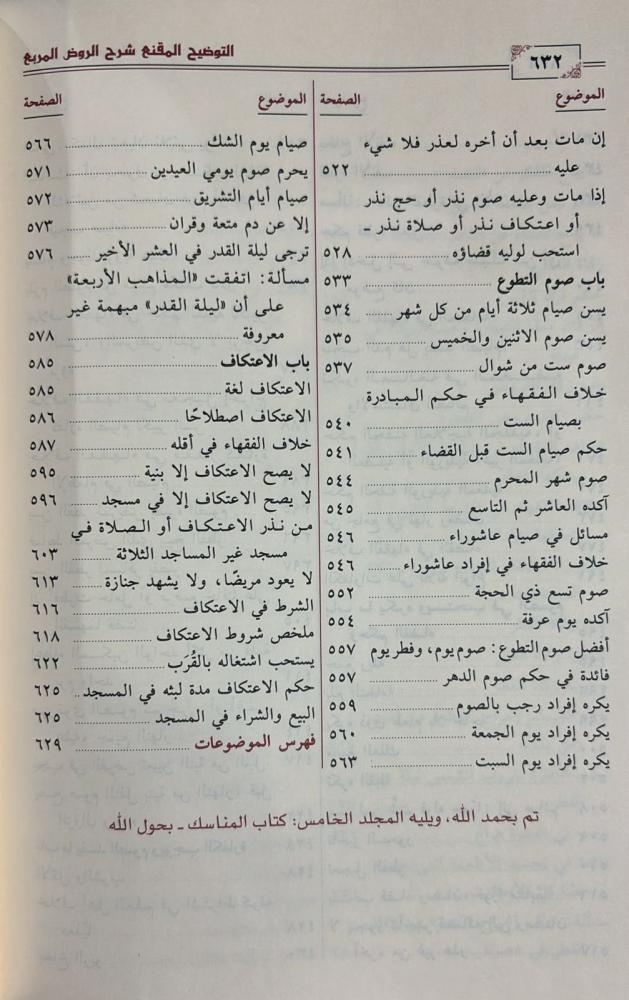 ٦٣٢
التوضيح المقنع شرح الروض المربع
الموضوع الصفحة
إن مات بعد أن أخره لعذر فلا شيء
عليه ٥٢٢
إذا مات وعليه صوم نذر أو حج نذر
أو اعتكاف نذر أو صلاة نذر ـ
استحب لوليه قضاؤه ٥٢٨
باب صوم التطوع ٥٣٣
يسن صيام ثلاثة أيام من كل شهر ٥٣٤
يسن صوم الاثنين والخميس ٥٣٥
صوم ست من شوال ٥٣٧
خلاف الفقهاء في حكم المبادرة
بصيام الست ٥٤٠
حكم صيام الست قبل القضاء ٥٤١
صوم شهر المحرم ٥٤٤
آكده العاشر ثم التاسع ٥٤٥
مسائل في صيام عاشوراء ٥٤٦
خلاف الفقهاء في إفراد عاشوراء ٥٤٦
صوم تسع ذي الحجة ٥٥٢
آكده يوم عرفة ٥٥٤
أفضل صوم التطوع: صوم يوم، وفطر يوم ٥٥٧
فائدة في حكم صوم الدهر ٥٥٧
يكره إفراد رجب بالصوم ٥٥٩
يكره إفراد يوم الجمعة ٥٦٠
يكره إفراد يوم السبت ٥٦٣
الموضوع الصفحة
صيام يوم الشك ٥٦٦
يحرم صوم يومي العيدين ٥٧١
صيام أيام التشريق ٥٧٢
إلا عن دم متعة وقران ٥٧٣
ترجى ليلة القدر في العشر الأخير ٥٧٦
مسألة: اتفقت «المذاهب الأربعة»
على أن «ليلة القدر» مبهمة غير
معروفة ٥٧٨
باب الاعتكاف ٥٨٥
الاعتكاف لغة ٥٨٥
الاعتكاف اصطلاحًا ٥٨٦
خلاف الفقهاء في أقله ٥٨٧
لا يصح الاعتكاف إلا بنية ٥٩٥
لا يصح الاعتكاف إلا في مسجد ٥٩٦
من نذر الاعتكاف أو الصلاة في
مسجد غير المساجد الثلاثة ٦٠٣
لا يعود مريضًا، ولا يشهد جنازة ٦١٣
الشرط في الاعتكاف ٦١٦
ملخص شروط الاعتكاف ٦١٨
يستحب اشتغاله بالقُرَب ٦٢٢
حكم الاعتكاف مدة لبثه في المسجد ٦٢٥
البيع والشراء في المسجد ٦٢٥
فهرس الموضوعات ٦٢٩
تم بحمد الله، ويليه المجلد الخامس: كتاب المناسك ـ بحول الله